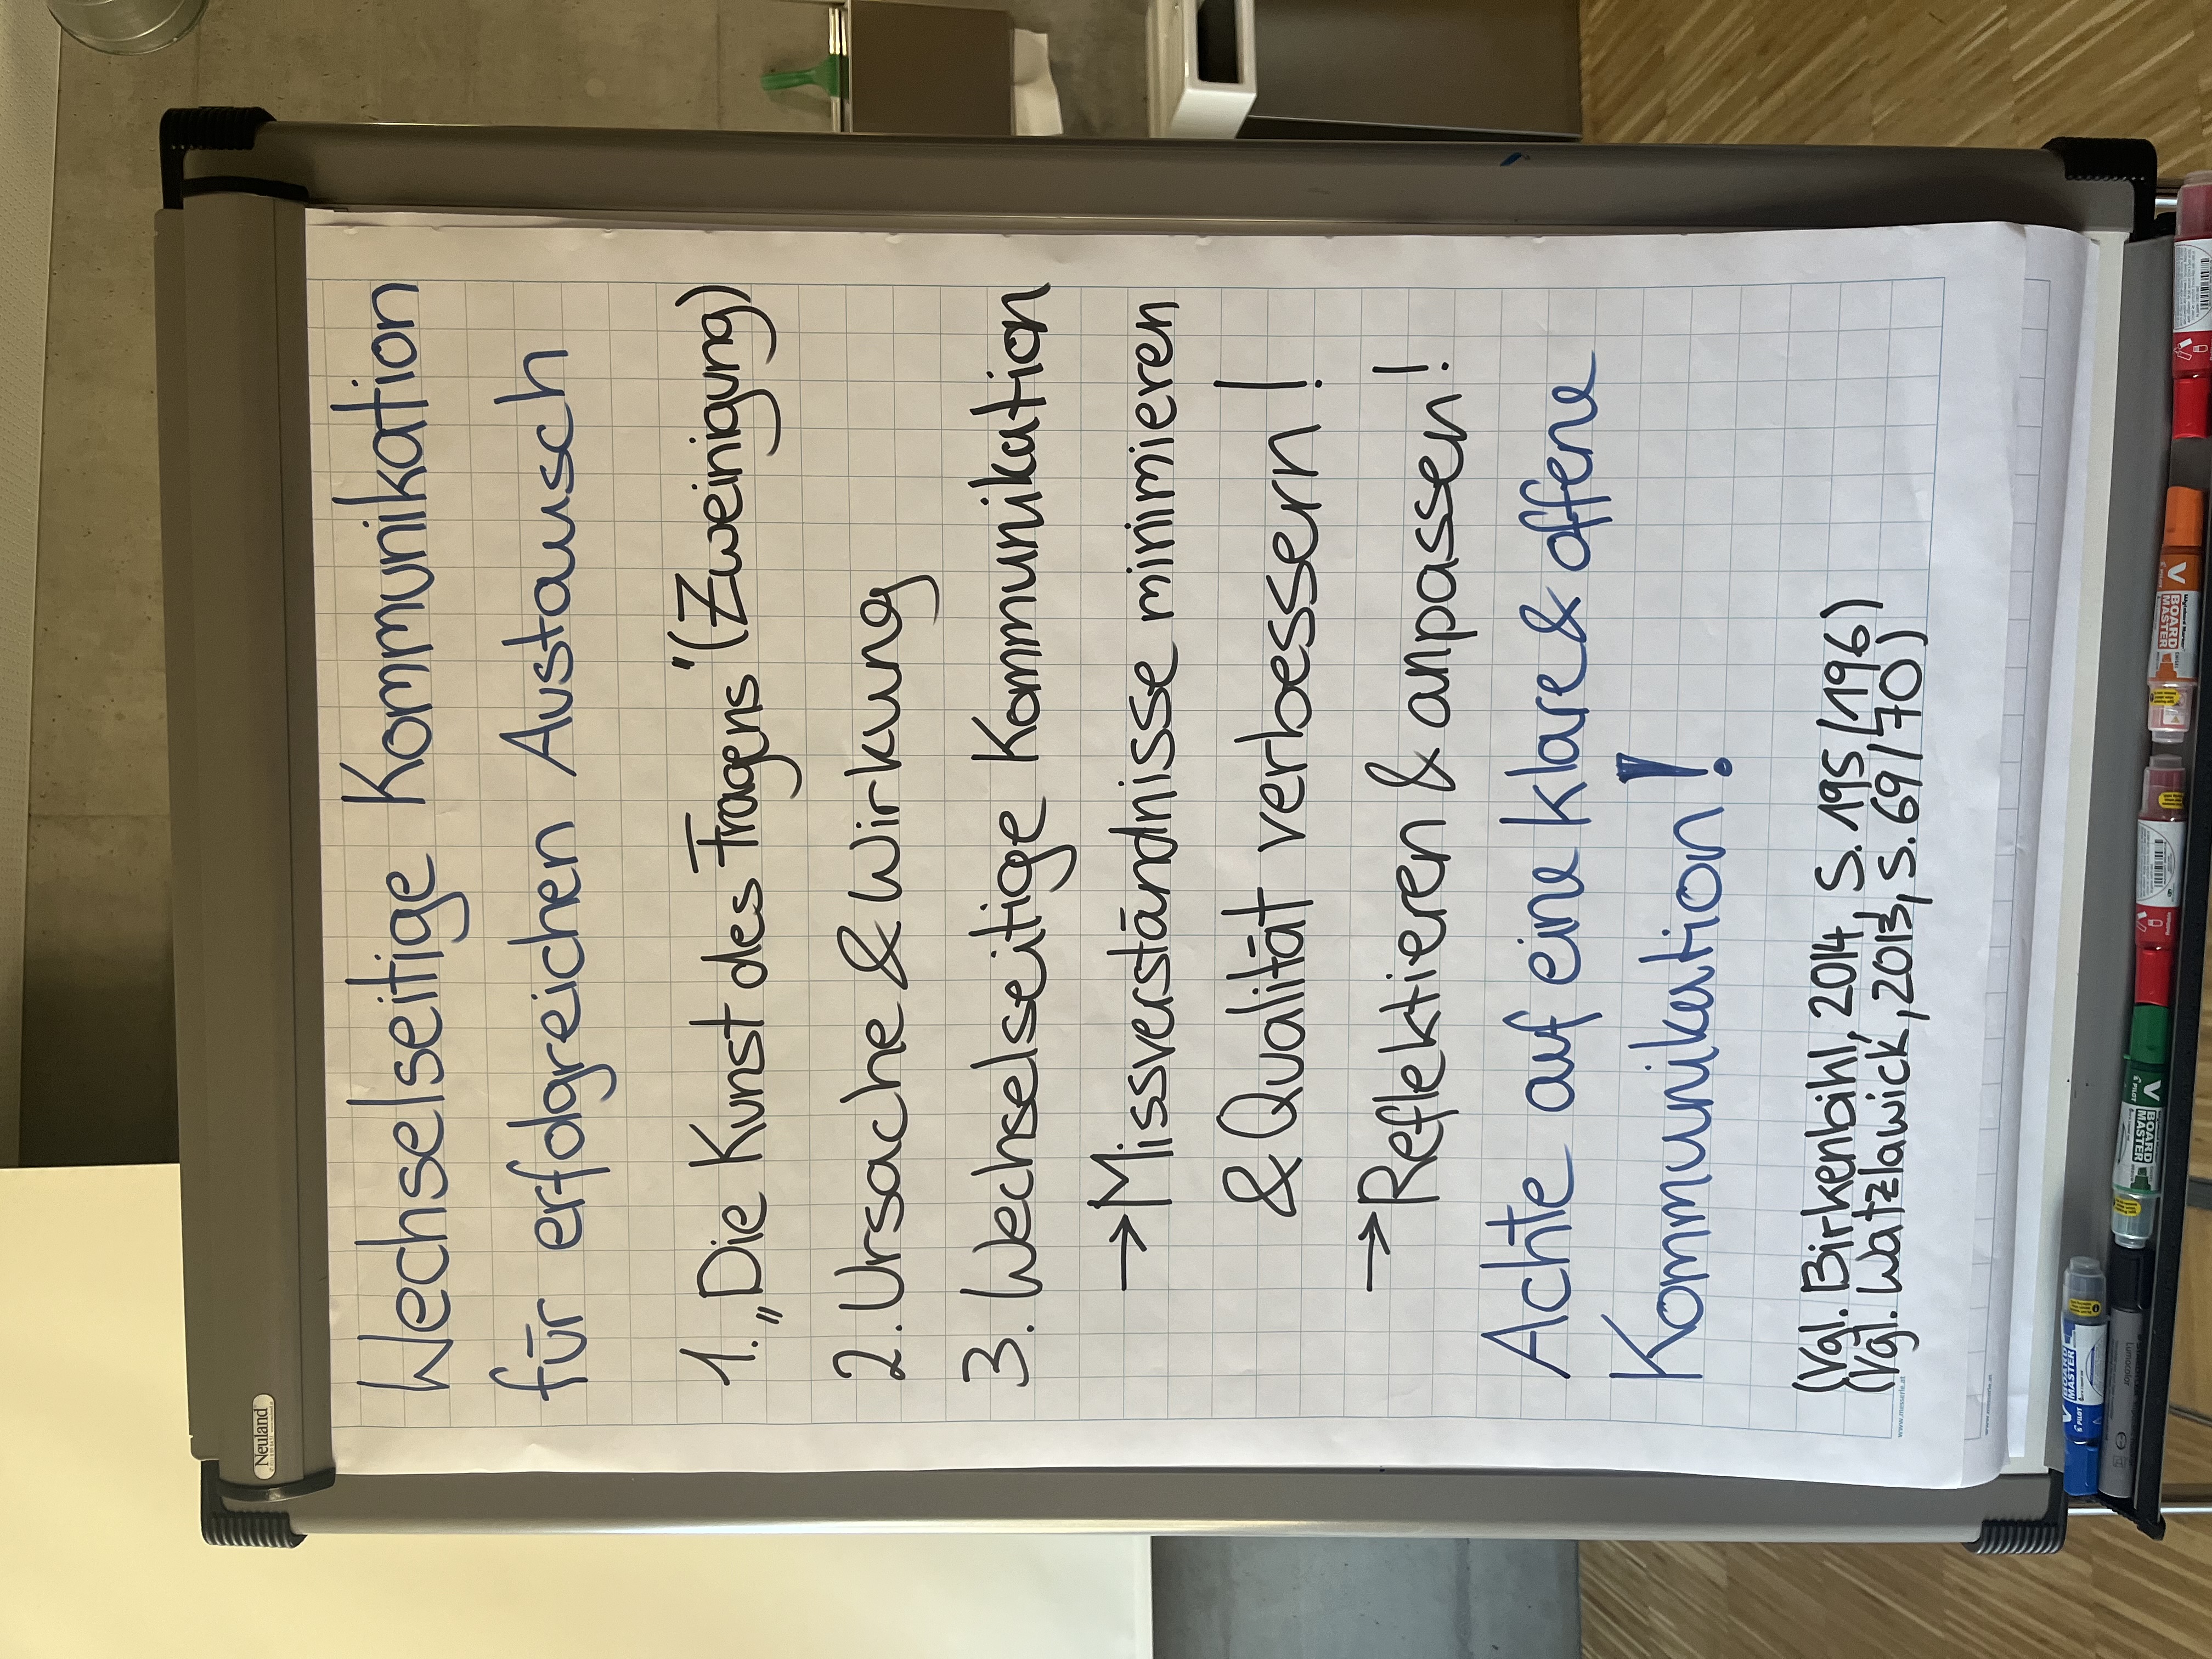 Neuland
Wechselseitige Kommunikation
für erfolgreichen Austausch
1. „Die Kunst des Fragens" (Zweinigung)
2. Ursache & Wirkung
3. Wechselseitige Kommunikation
→ Missverständnisse minimieren
& Qualität verbessern!
→ Reflektieren & anpassen!
Achte auf eine klare & offene
Kommunikation!
(Vgl. Birkenbihl, 2014, S. 195/196)
(Vgl. Watzlawick, 2013, S. 69/70)
www.messerle.at
PILOT
BOARD
MASTER
PILOT
BOARD
MASTER
BOARD
MASTER